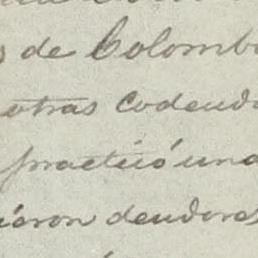 s de Colomb
otras codeud
practicó una
ieron deudores